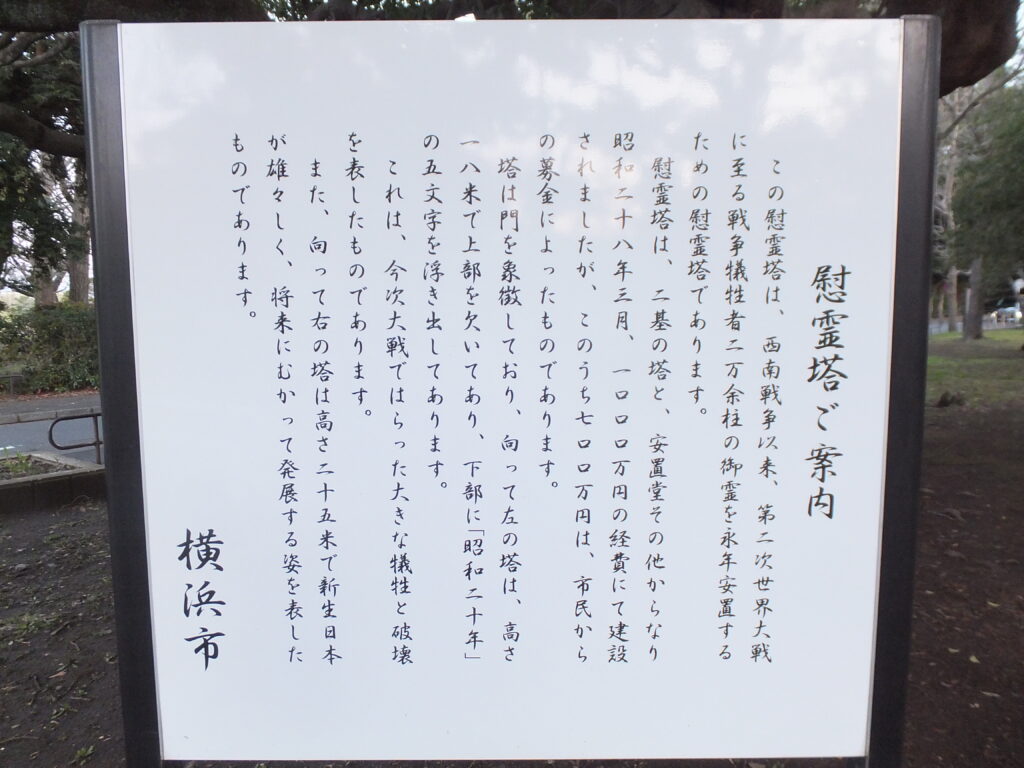 慰霊塔ご案内
この慰霊塔は、西南戦争以来、第二次世界大戦
に至る戦争犠牲者二万余柱の御霊を永年安置する
ための慰霊塔であります。
慰霊塔は、二基の塔と、安置堂その他からなり
昭和二十八年三月、一〇〇〇万円の経費にて建設
されましたが、このうち七〇〇万円は、市民から
の募金によったものであります。
塔は門を象徴しており、向って左の塔は、高さ
一八米で上部を欠いてあり、下部に「昭和二十年」
の五文字を浮き出してあります。
これは、今次大戦ではらった大きな犠牲と破壊
を表したものであります。
また、向って右の塔は高さ二十五米で新生日本
が雄々しく、将来にむかって発展する姿を表した
ものであります。
横浜市